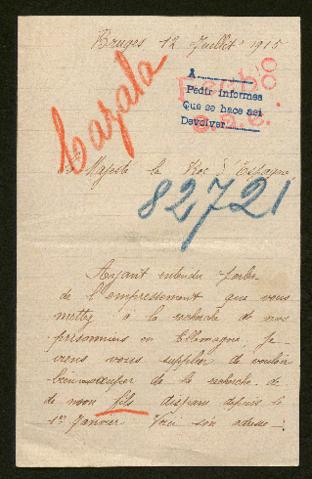 Bruges 12 Juillet 1915
Cazala
A
Pedir informes
Que se hace así
Devolver
Majesté le Roi d'Espagne
82721
Ayant entendu parler
de l'empressement que vous
mettez à la recherche de nos
prisonniers en Allemagne, je
viens vous supplier de vouloir
bien occuper de la recherche de
de mon fils disparu depuis le
1er Janvier Voici son adresse :